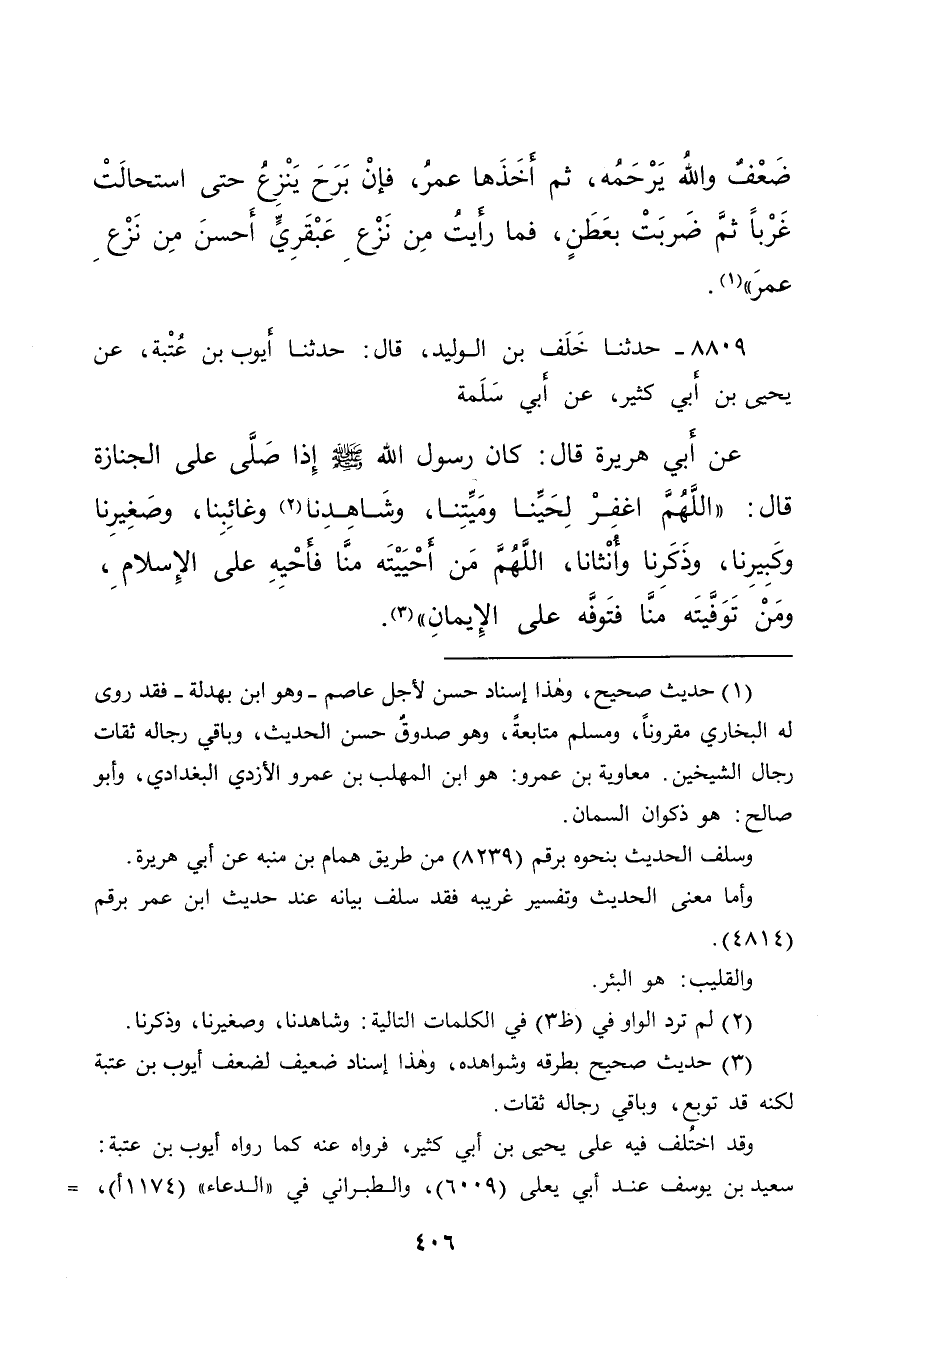 ضَعْفٌ واللهُ يَرْحَمُه، ثم أَخَذَها عمرُ، فإنْ بَرَحَ يَنْزِعُ حتى استحالَتْ
غَرْباً ثمَّ ضَرَبَتْ بعَطَنٍ، فما رأَيتُ مِن نَزْعِ عَبْقَريٍّ أَحسنَ مِن نَزْعِ
عمرَ»(١).
٨٨٠٩ ـ حدثنا خَلَف بن الـوليد، قال: حدثنـا أَيوب بن عُتْبة، عن
يحيى بن أَبي كثير، عن أَبي سَلَمة
عن أَبي هريرة قال: كان رسول الله ﷺ إِذا صَلَّى على الجنازة
قال: «اللَّهُمَّ اغفِـرْ لِحَيِّنـا ومَيِّتِنـا، وشَـاهِـدِنا(٢) وغائِبِنا، وصَغِيرِنا
وكَبِيرِنا، وذَكَرِنا وأُنْثانا، اللَّهُمَّ مَن أَحْيَيْتَه منَّا فأَحْيِهِ على الإِسلامِ،
ومَنْ تَوَفَّيتَه منَّا فتَوفَّه على الإِيمانِ»(٣).
(١) حديث صحيح، وهٰذا إسناد حسن لأجل عاصم ـ وهو ابن بهدلة ـ فقد روى
له البخاري مقروناً، ومسلم متابعةً، وهو صدوقٌ حسن الحديث، وباقي رجاله ثقات
رجال الشيخين. معاوية بن عمرو: هو ابن المهلب بن عمرو الأزدي البغدادي، وأبو
صالح: هو ذكوان السمان.
وسلف الحديث بنحوه برقم (٨٢٣٩) من طريق همام بن منبه عن أبي هريرة.
وأما معنى الحديث وتفسير غريبه فقد سلف بيانه عند حديث ابن عمر برقم
(٤٨١٤).
والقليب: هو البئر.
(٢) لم ترد الواو في (ظ٣) في الكلمات التالية: وشاهدنا، وصغيرنا، وذكرنا.
(٣) حديث صحيح بطرقه وشواهده، وهٰذا إسناد ضعيف لضعف أيوب بن عتبة
لكنه قد توبع، وباقي رجاله ثقات.
وقد اختُلف فيه على يحيى بن أبي كثير، فرواه عنه كما رواه أيوب بن عتبة:
سعيد بن يوسف عنـد أبي يعلى (٦٠٠٩)، والـطبـراني في «الـدعاء» (١١٧٤أ)، =
٤٠٦